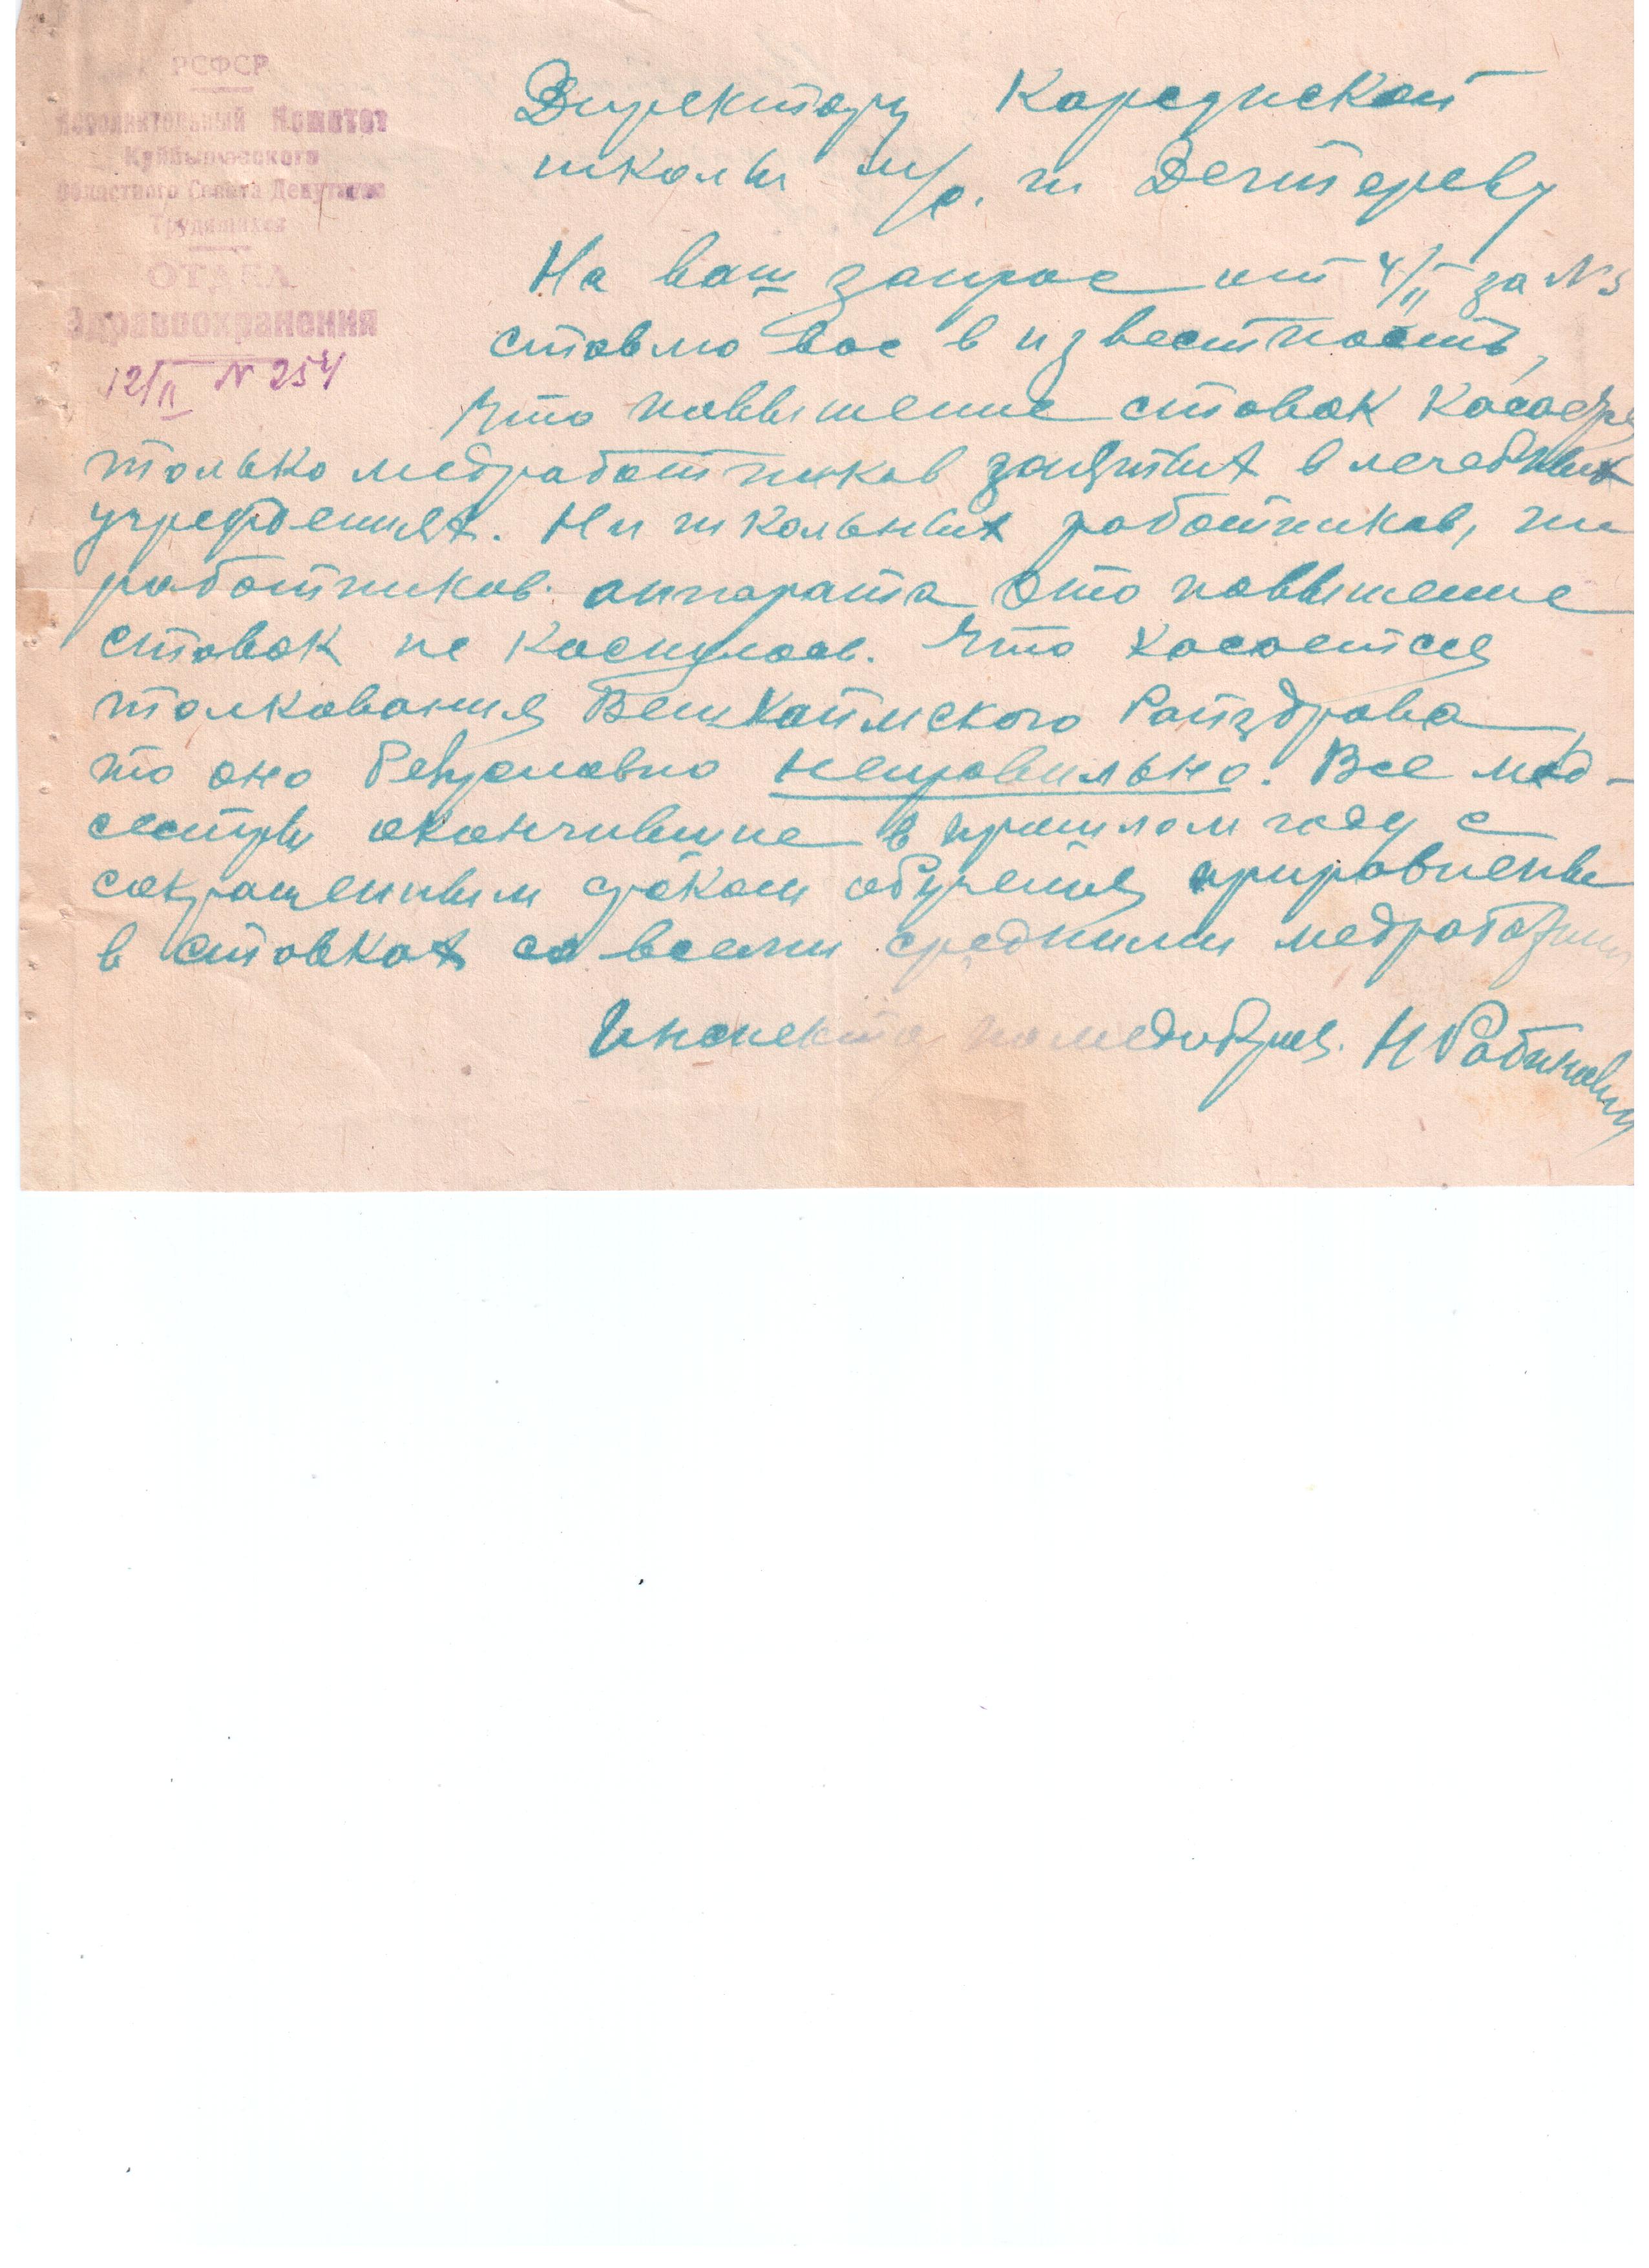 РСФСР
Исполнительный Комитет
Куйбышевского
Областного Совета Депутатов
Трудящихся
ОТДЕЛ
Здравоохранения
12/II N 254
Директору Карсунской
школы м/с. т Дегтереву
На ваш запрос от 4/II за N 3
ставлю вас в известность,
что повышение ставок касается
только медработников занятых в лечебных
учреждениях. Ни школьных работников, ни
работников аппарата это повышение
ставок не коснулось. Что касается
толкования Вешкаймского Райздрава,
то оно безусловно неправильно. Все мед-
сестры окончившие в прошлом году с
сокращенным сроком обучения приравнены
в ставках со всеми средними медработниками
Инспектор по медобраз. Н Рабинович